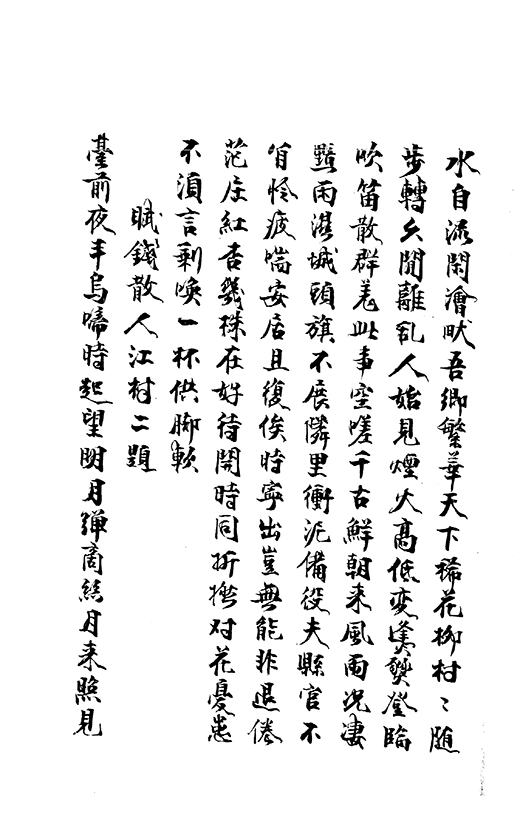 水自流閑澮畎吾鄉繁華天下稀花柳村〻隨
步轉久聞離亂人始見煙火高低變逢興登臨
吹笛散群羌此事空嗟千古鮮朝来風雨况凄
黯雨濕城頭旗不展隣里衝泥備役夫縣官不
肯憐疲喘安居且復俟時寧出豈無能非退倦
范庄紅杏幾株在好待開時同折撚对花憂患
不須言剩喚一杯供脚軟
賦錢散人江村二題
臺前夜半烏啼時起望明月彈商絲月来照見